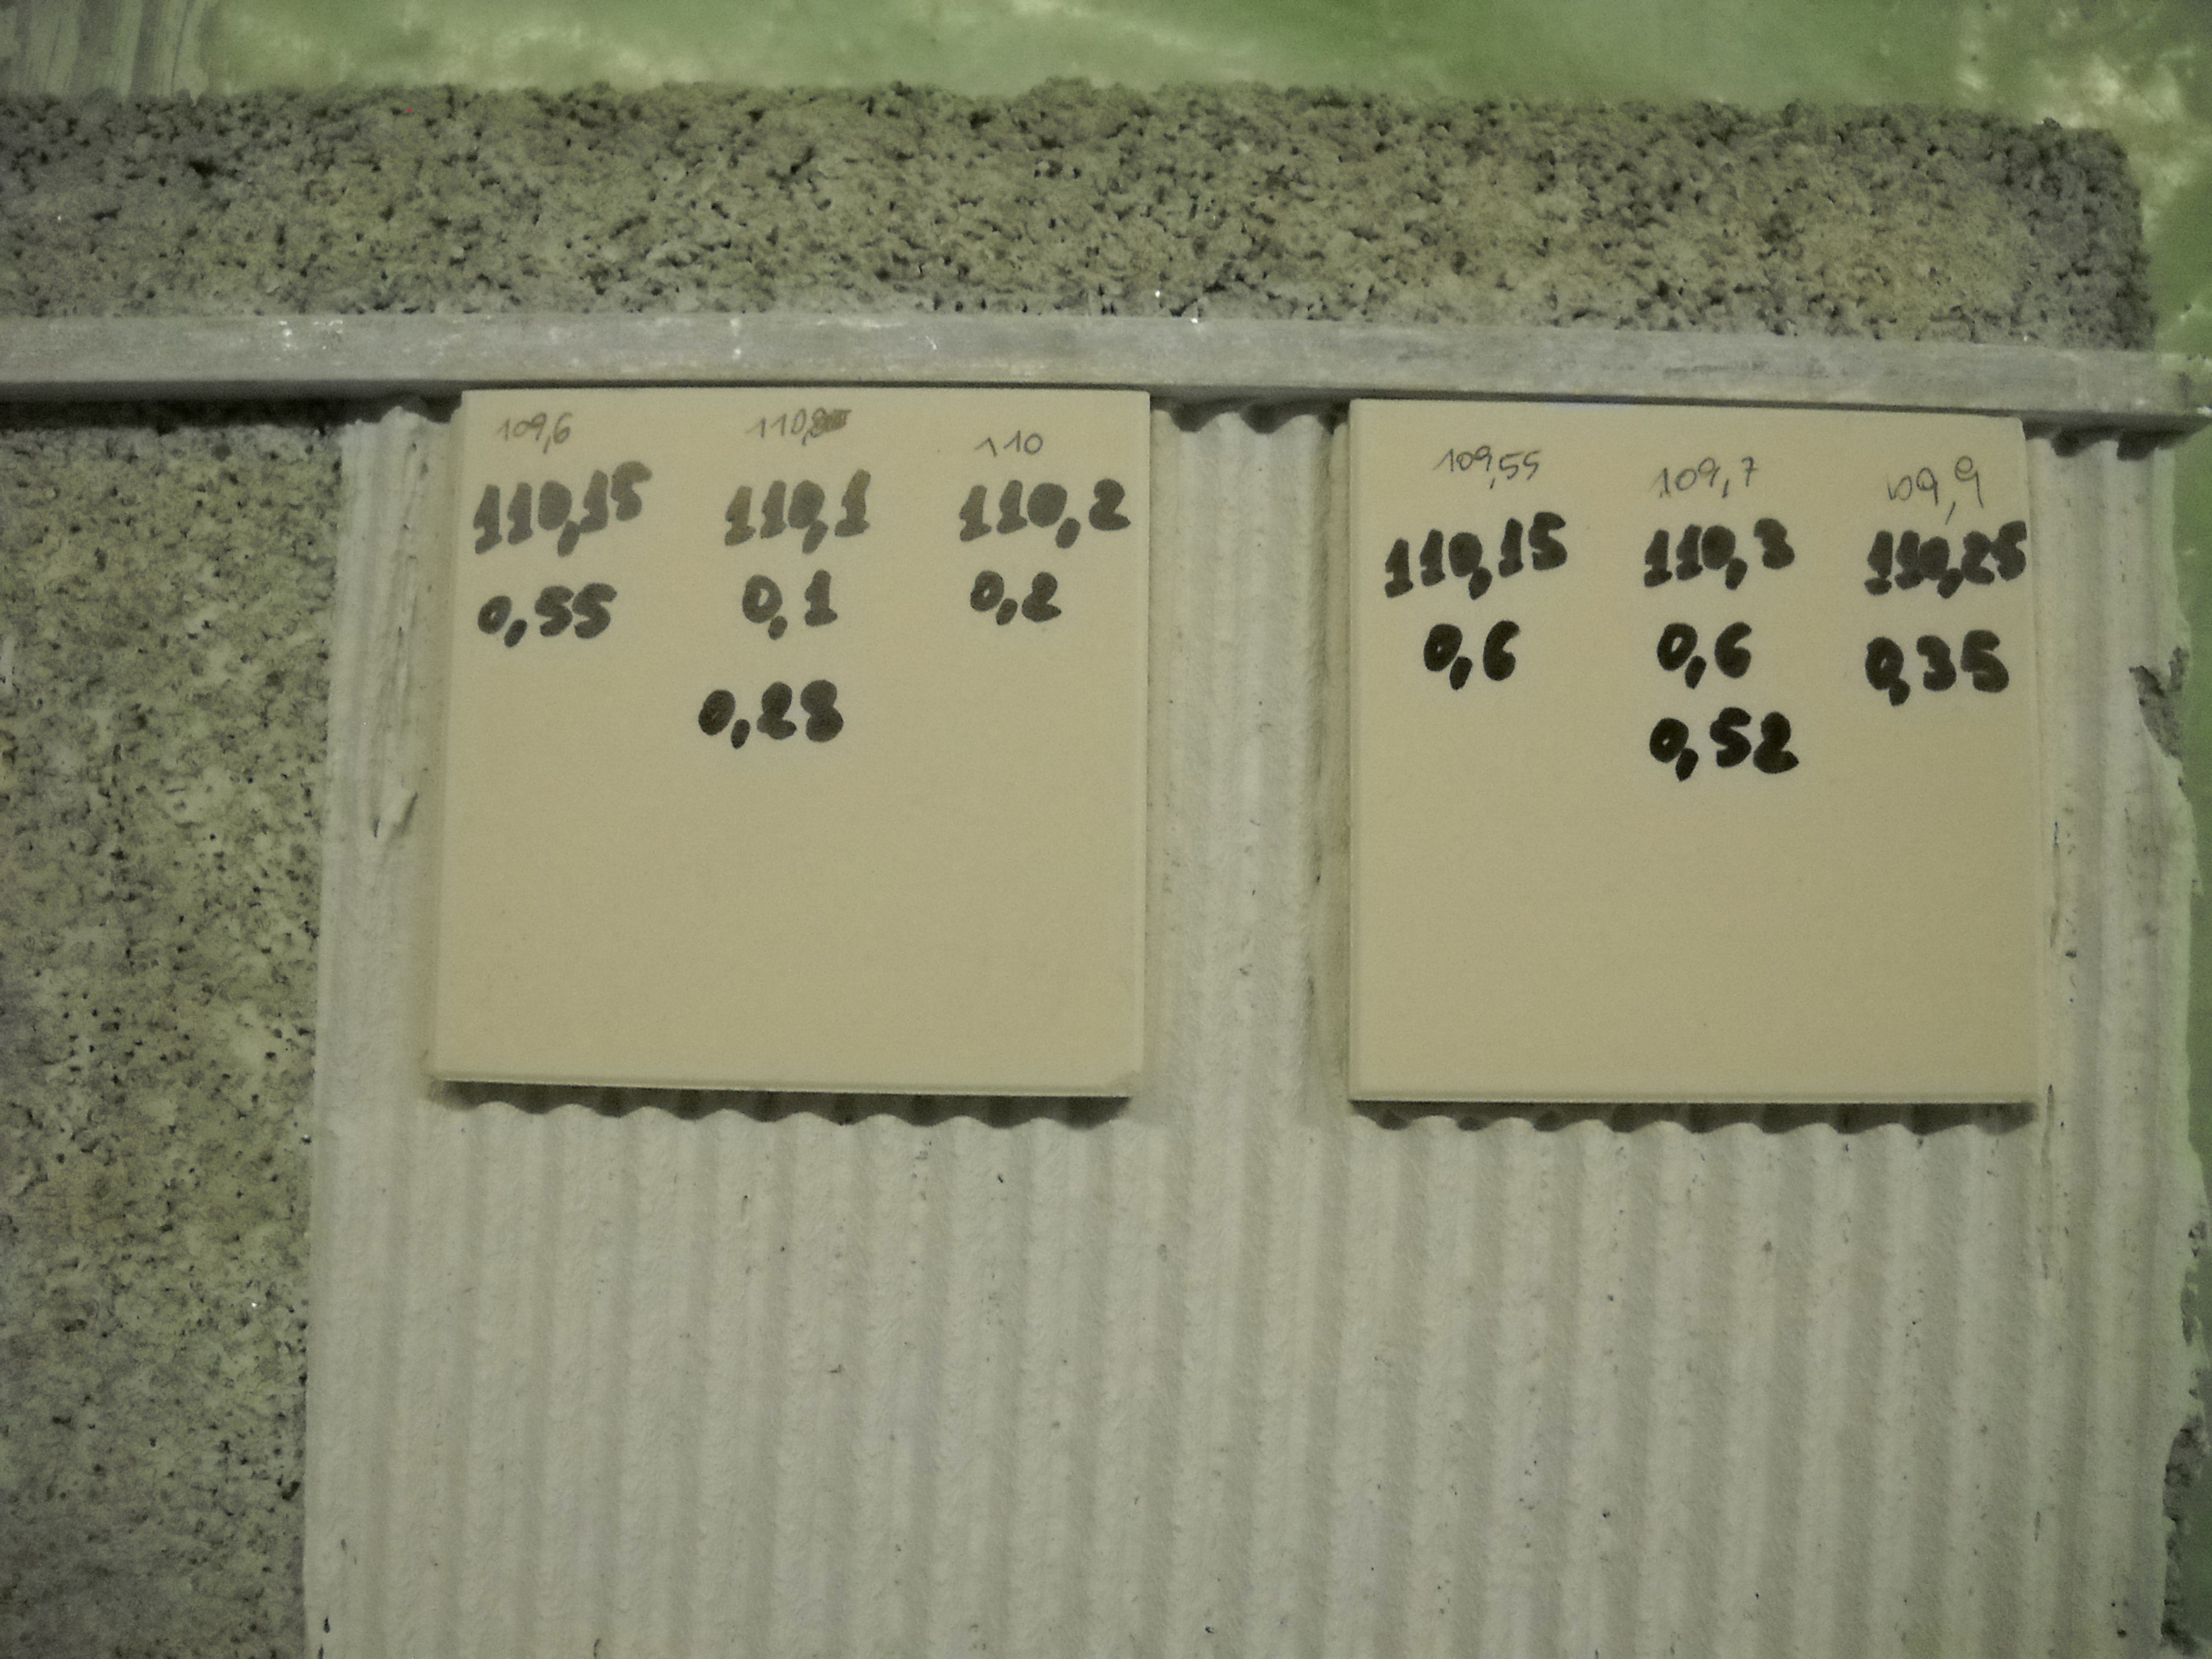 109,6 110
110,15 110,1 110,2
0,55 0,1 0,2
0,28
109,55 109,7 109,9
110,15 110,3 110,25
0,6 0,6 0,35
0,52